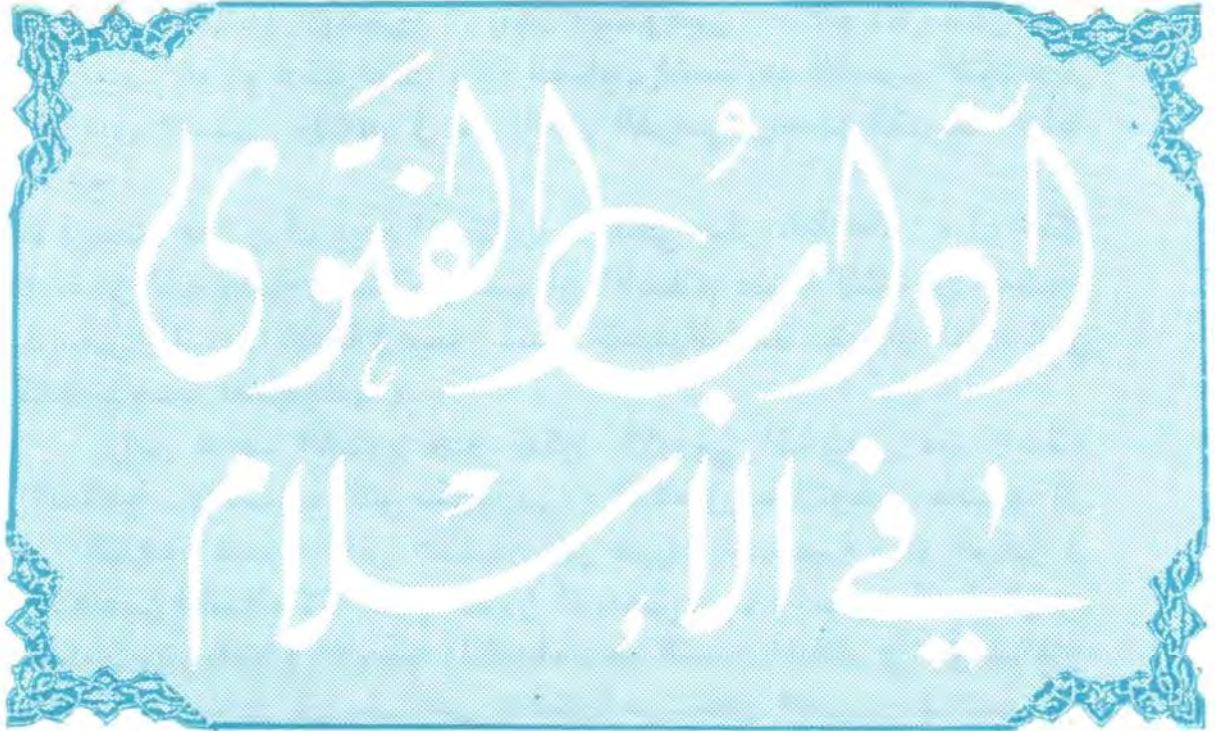 آدابُ الفَتوى
في الإسلام